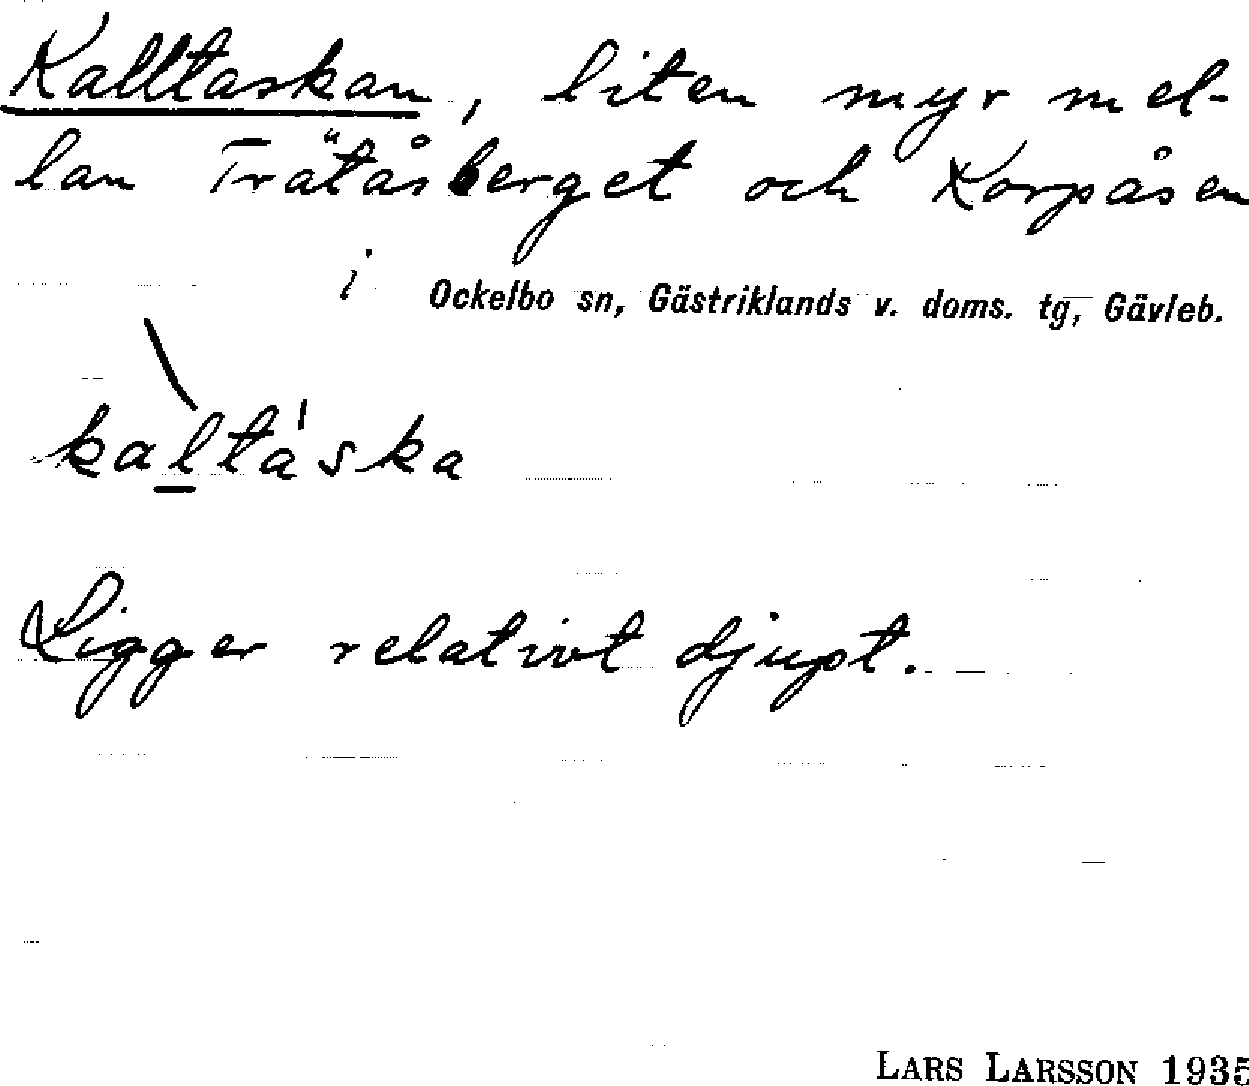 Kalltaskan, liten myr mel-
lan Trätåsberget och Korpåsen
i Ockelbo sn, Gästriklands v. doms. tg, Gävleb.
kaltáska
Ligger relativt djupt. —
LARS LARSSON 1935